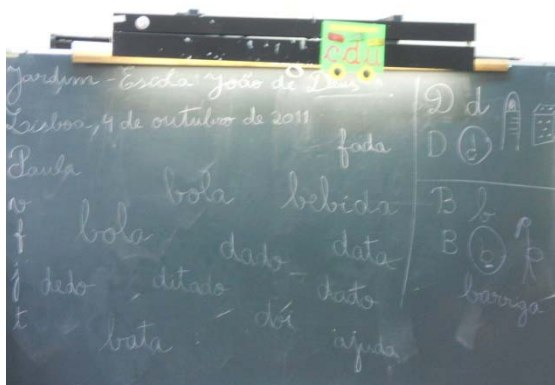 cdu
Jardim-Escola João de Deus
Lisboa, 4 de outubro de 2011
Paula
fada
bola bebida
bola
dado data
dedo ditado dato
dói
bata ajuda
v
f
j
t
D d
D d
B b
B b
barriga